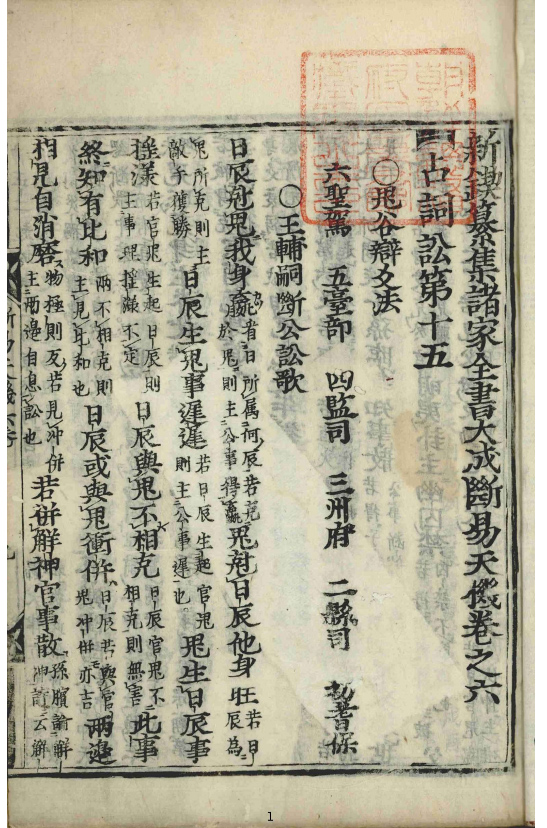 新鍥纂集諸家全書大成斷易天機卷之六
占詞訟第十五
○鬼谷辯爻法
六聖駕　五臺部　四監司　三州府　二縣司　初耆保
○王輔嗣斷公訟歌
日辰尅鬼我身贏看日所属何辰若尅於鬼則主公事得贏鬼尅日辰他身旺若日辰為
鬼所克則主敵手獲勝日辰生鬼事遲遲若日辰生起官鬼則主公事遲也鬼生日辰事
摇漾若官鬼生起日辰則主事理摧漾不定日辰與鬼不相克日辰官鬼不相克則無害此事
終知有比和两不相克則主見和也日辰或與鬼衝併日辰若與官鬼冲併亦吉两邉
相見自消磨物極則反若見冲併主两邉自息訟也若併解神官事散孫臏論解神詩云解
1